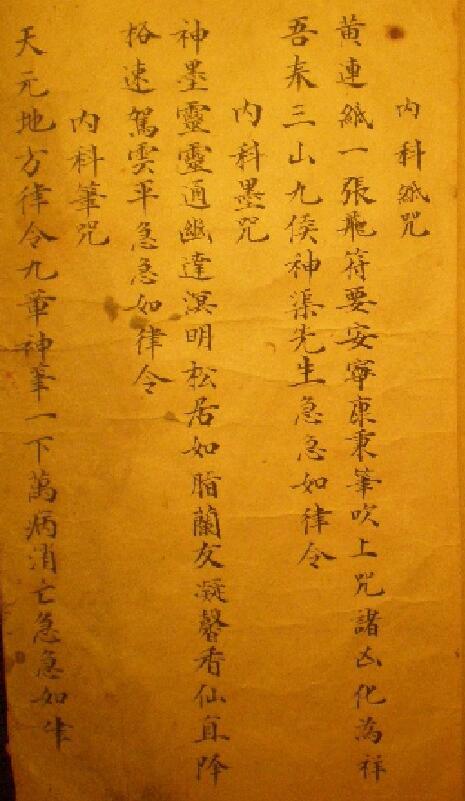 内科紙咒
黄連紙一張飛符要安寧東秉筆吹上咒諸凶化為祥
吾奉三山九侯神渠先生急急如律令
内科墨咒
神墨靈靈通幽達溟明松居如脂蘭友凝馨香仙直降
格速駕雲平急急如律令
内科筆咒
天元地方律令九華神筆一下萬病消亡急急如律